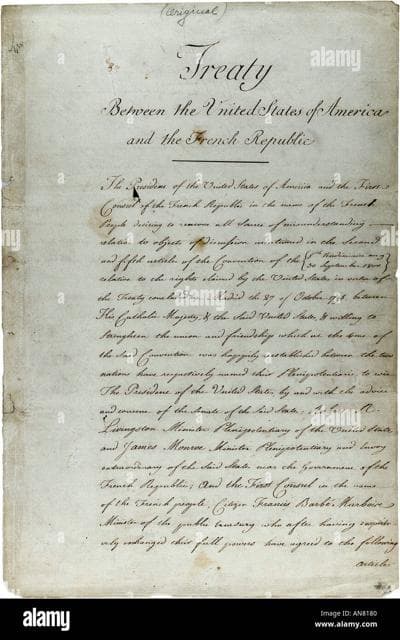 (Original)
Treaty
Between the United States of America
and the French Republic
The President of the United States of America and the First
Consul of the French Republic in the name of the French
People desiring to remove all Source of misunderstanding
relative to objects of discussion mentioned in the Second
and fifth articles of the Convention of the 8th Vendémiaire an 9
30 September 1800
relative to the rights claimed by the United States in virtue of
the Treaty concluded at Madrid the 27 of October 1795 between
His Catholic Majesty, & the Said United States, & willing to
Strengthen the union and friendship which at the time of
the Said Convention was happily established between the two
nations have respectively named their Plenipotentiaries to wit
The President of the United States, by and with the advice
and consent of the Senate of the Said States; Robert R.
Livingston Minister Plenipotentiary of the United States
and James Monroe Minister Plenipotentiary and Envoy
extraordinary of the Said States near the Government of the
French Republic; And the First Consul in the name
of the French people, Citizen Francis Barbé Marbois
Minister of the public treasury who after having respecti-
vely exchanged their full powers have agreed to the following
articles
alamy stock photo
alamy
alamy
alamy
a
a
a
alamy
Image ID: AN8180
www.alamy.com